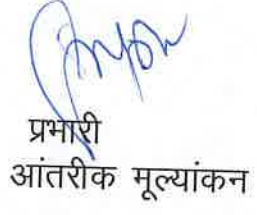 प्रभारी
आंतरीक मूल्यांकन